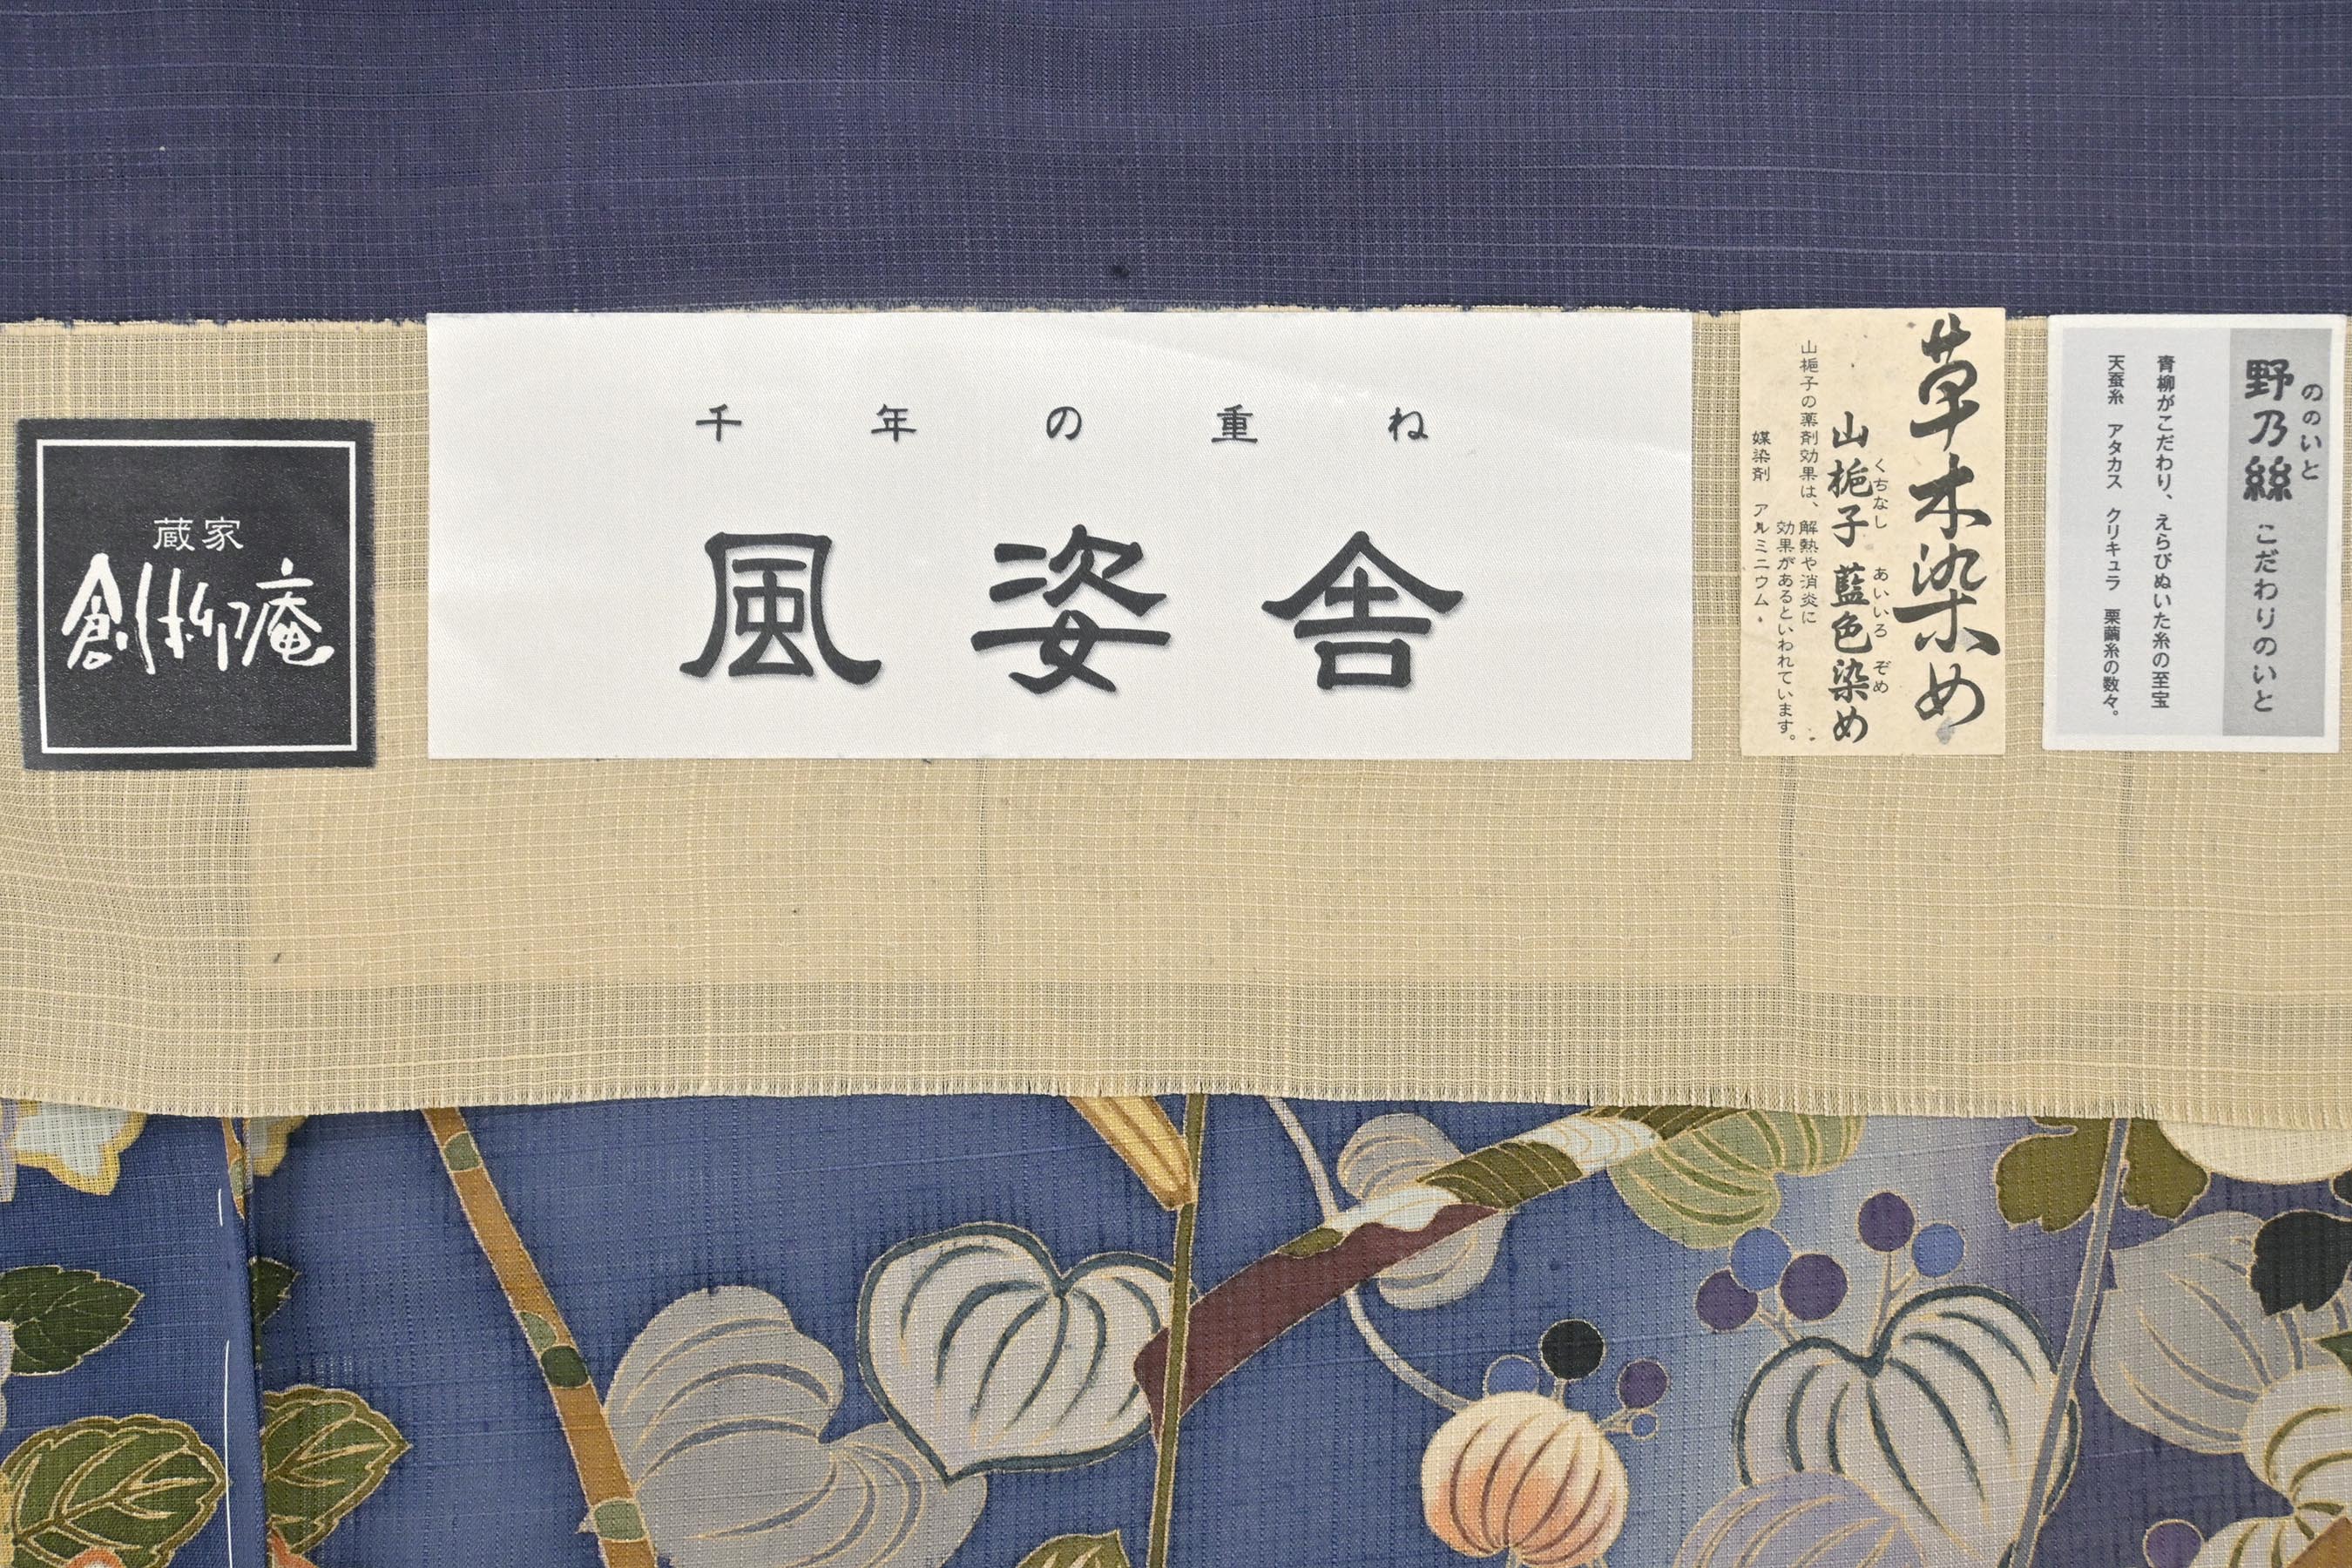 蔵家
創柳庵
千年の重ね
風姿舎
草木染め
山梔子藍色染め
くちなし あいいろ ぞめ
山梔子の薬剤効果は、解熱や消炎に
効果があるといわれています。
媒染剤 アルミニウム
野乃絲 こだわりのいと
ののいと
青柳がこだわり、えらびぬいた糸の至宝
天蚕糸 アタカス クリキュラ 栗繭糸の数々。